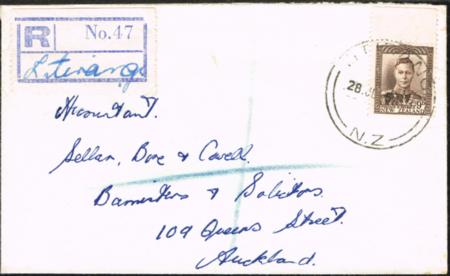 R No. 47
28 JU
NEW ZEALAND
N.Z
Accountant.
Sellar, Bone & Cowell.
Barristers & Solicitors
109 Queens Street.
Auckland.